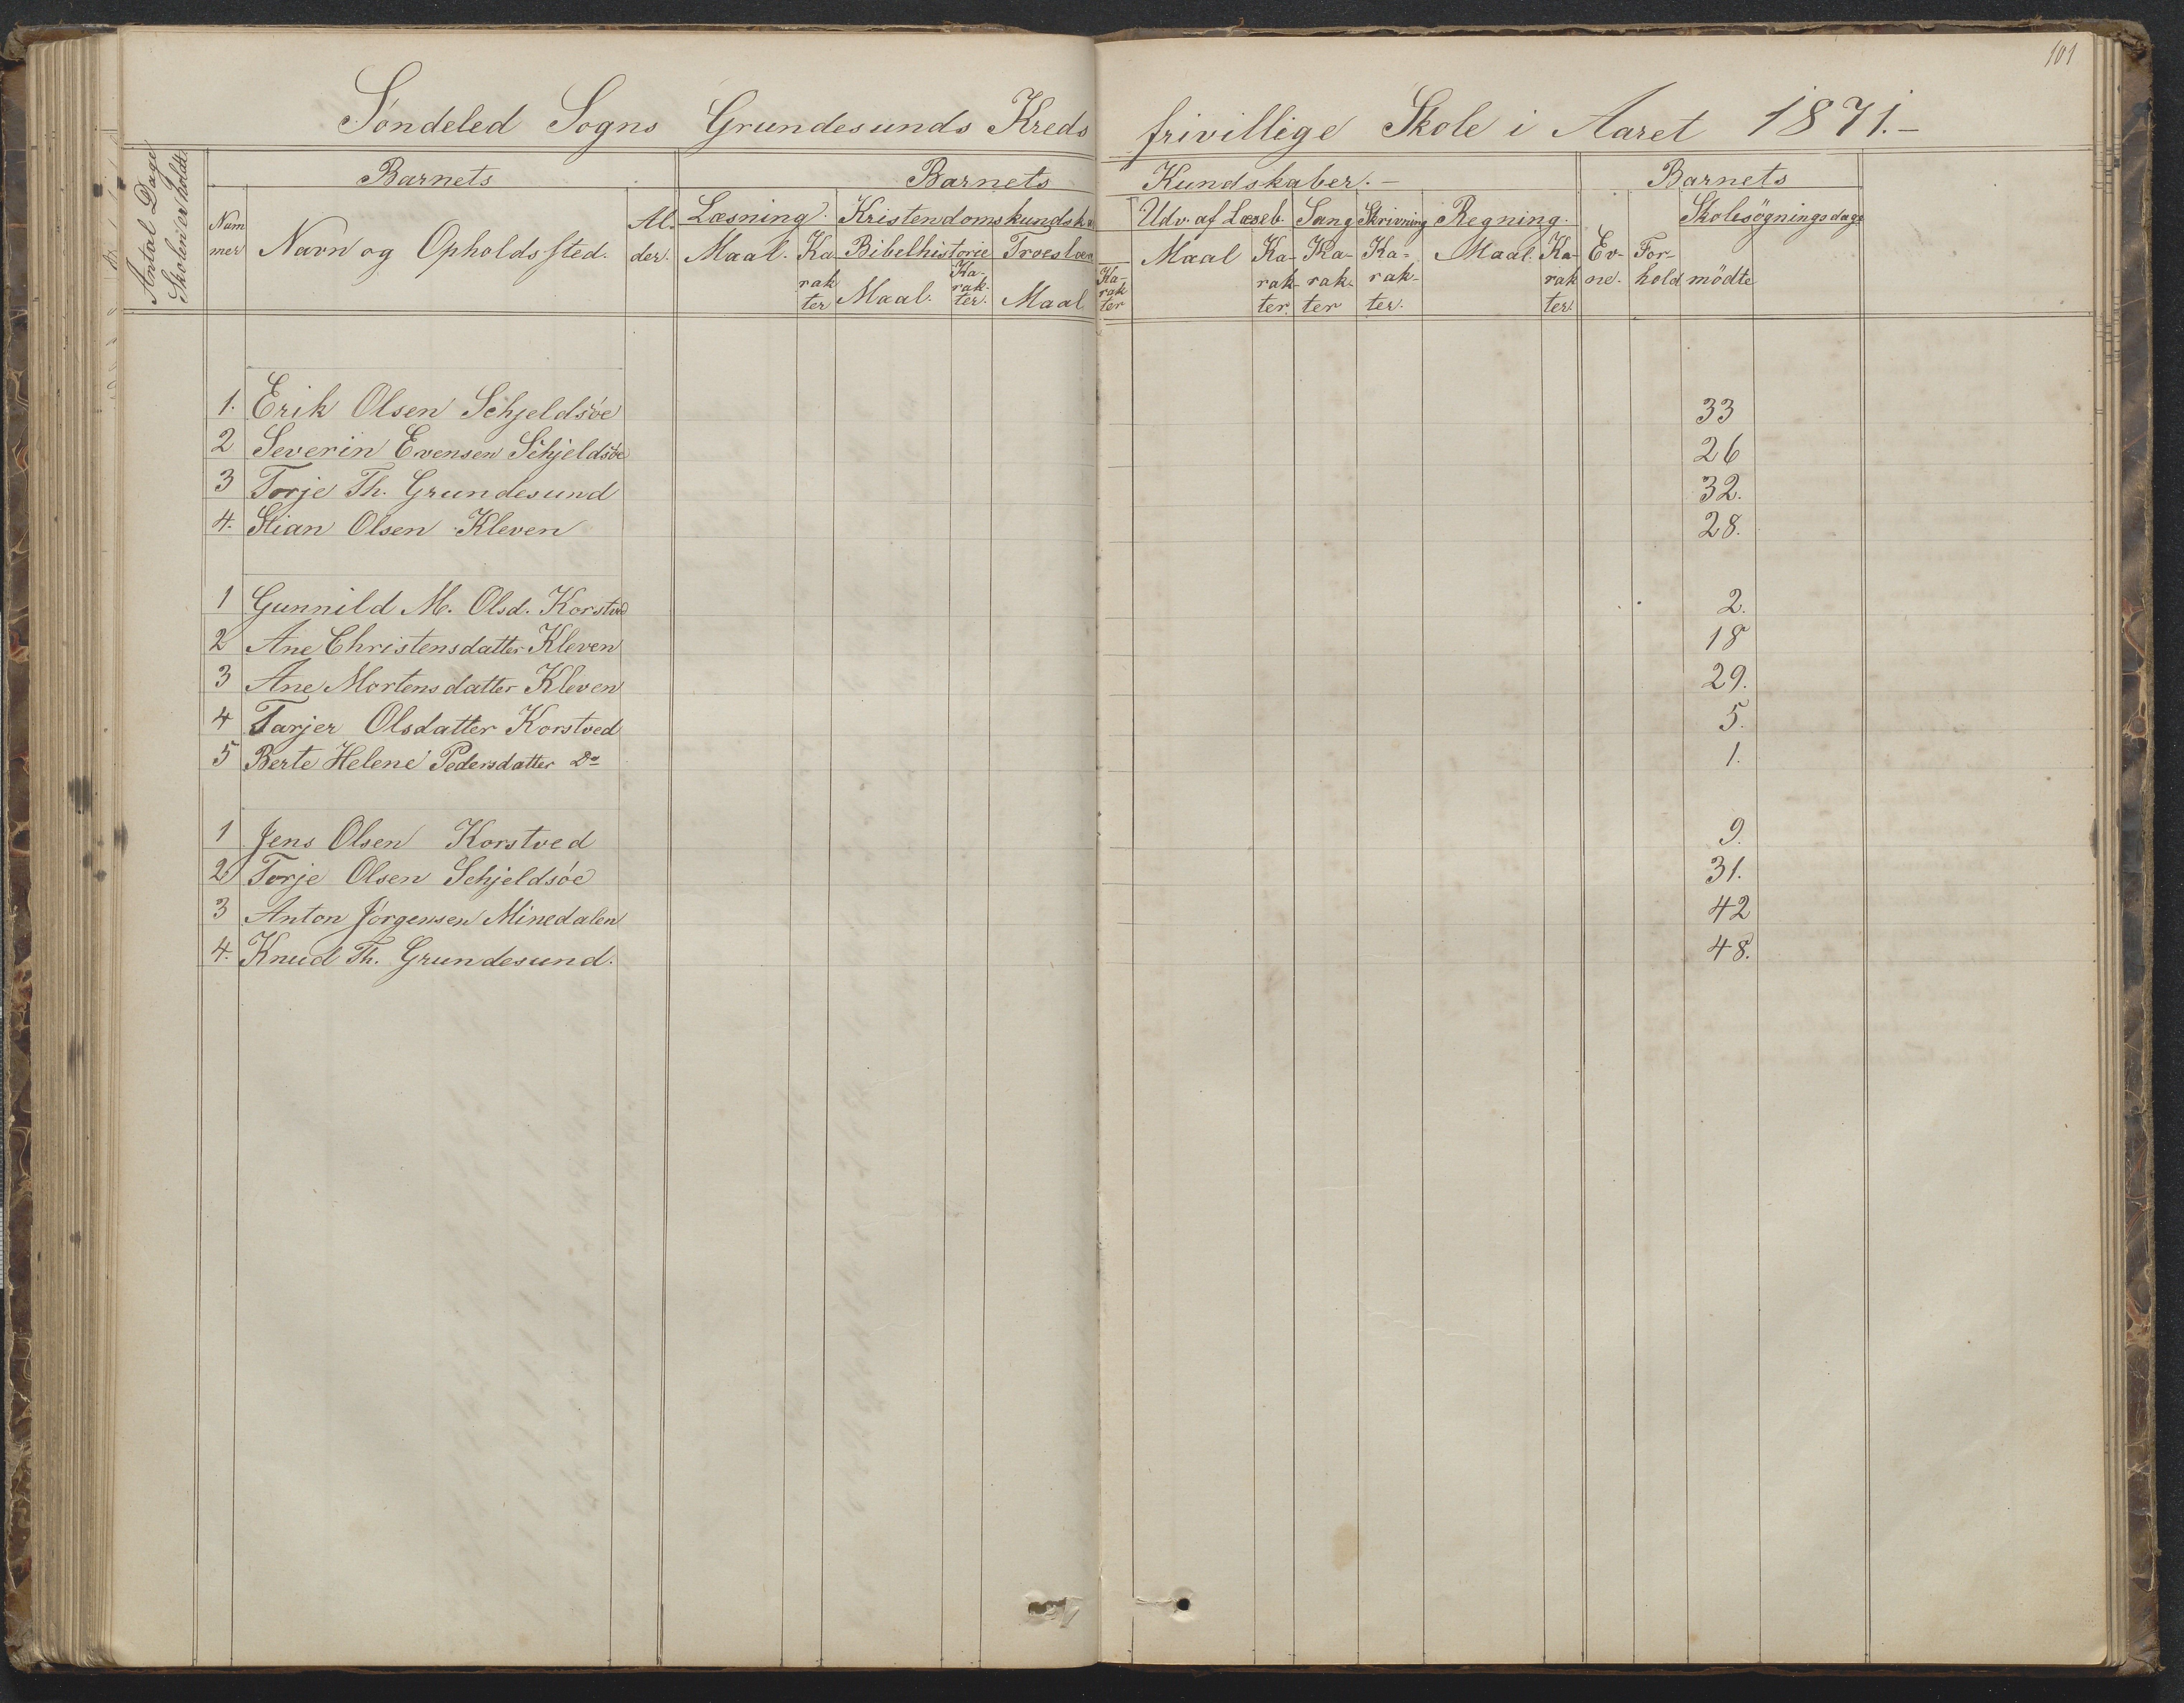 101
Söndeled Sogns Grundesunds Kreds frivillige Skole i Aaret 1871.-
Antal Dage Skolen er holdt
Barnets
Barnets Kundskaber.-
Barnets
Nummer
Navn og Opholdssted.
Alder.
Læsning.
Kristendomskundska
Udv. af Læseb.
Sang
Skrivning
Regning.
Skolesögningsdage
Maal.
Karakter
Bibelhistorie
Maal.
Karakter.
Troeslær
Maal
Karakter
Maal
Karakter.
Karakter
Karakter.
Maal.
Karakter.
Evne.
Forhold
mödte
1. Erik Olsen Schjeldsöe 33
2 Severin Evensen Schjeldsöe 26
3 Torje Th. Grundesund 32.
4. Stian Olsen Kleven 28.
1 Gunnild M. Olsd. Korstved 2.
2 Ane Christensdatter Kleven 18
3 Ane Mortensdatter Kleven 29.
4 Tarjer Olsdatter Korstved 5.
5 Berte Helene Pedersdatter Do 1.
1 Jens Olsen Korstved 9.
2 Torje Olsen Schjeldsöe 31.
3 Anton Jörgensen Minedalen 42
4. Knud Th. Grundesund. 48.